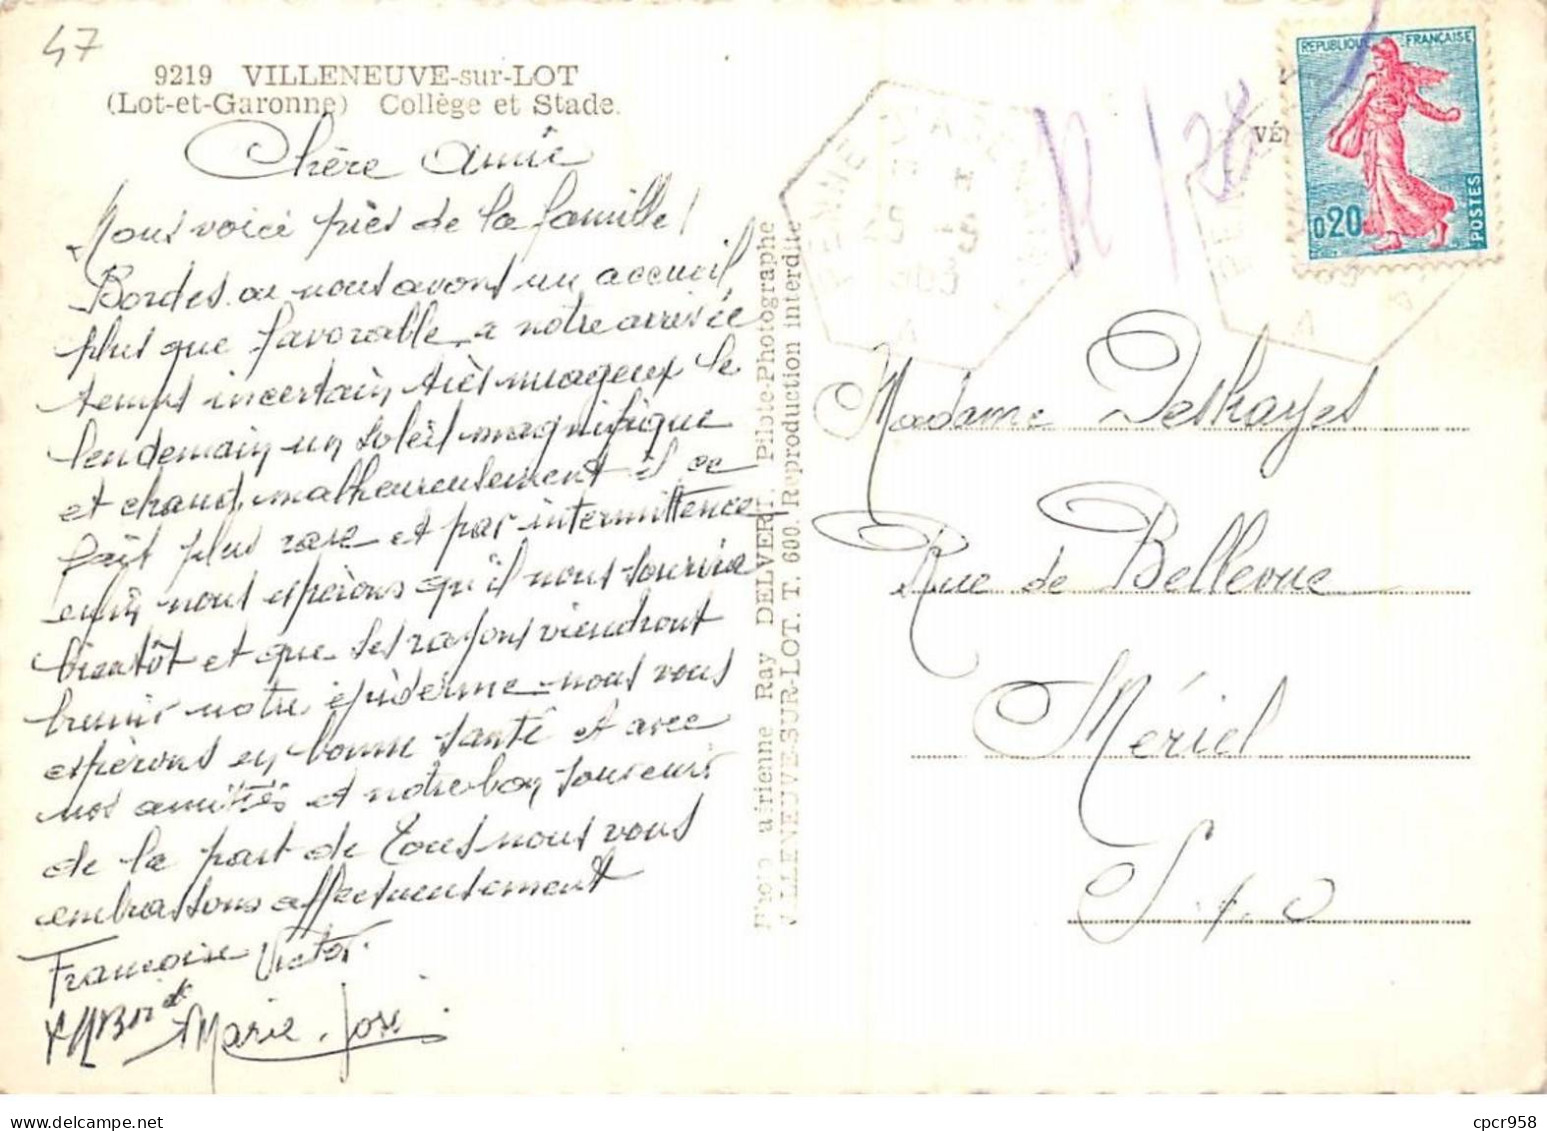 47
9219 VILLENEUVE-sur-LOT
(Lot-et-Garonne) Collège et Stade.
Chère Amie
Nous voici près de la famille
Bordes. ou nous avons un accueil
plus que favorable. a notre arrivée
temps incertain, très nuageux le
lendemain un soleil magnifique
et chaud, malheureusement il se
fait plus rare et par intermittence
enfin nous espérons qu'il nous sourira
bientôt et que ses rayons viendront
brunir notre épiderme - nous vous
espérons en bonne santé et avec
nos amitiés et notre bon souvenir
de la part de tous nous vous
embrassons affectueusement
Françoise Victor.
Marie-José
Photo aérienne Ray DELVERT. Pilote-Photographe
VILLENEUVE-SUR-LOT. T. 600. Reproduction interdite
PENNE D'AGENAIS
REPUBLIQUE FRANÇAISE
0,20
POSTES
Madame Deshayes
Rue de Bellevue
Mériel
S. &. O
cpcr958